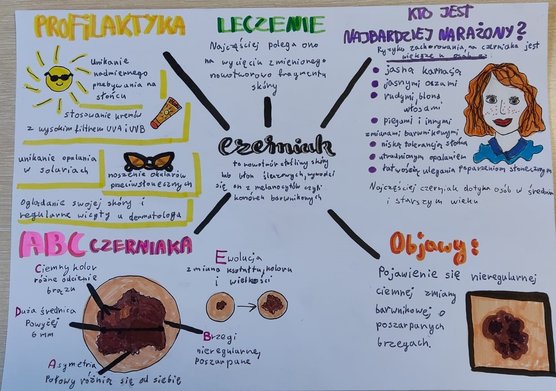 PROFILAKTYKA
Unikanie
nadmiernego
przebywania na
słońcu
stosowanie kremów
z wysokim filtrem UVA i UVB
unikanie opalania
w solariach
noszenie okularów
przeciwsłonecznych
Oglądanie swojej skóry i
regularne wizyty u dermatologa
LECZENIE
Najczęściej polega ono
na wycięciu zmienionego
nowotworowo fragmentu
skóry
KTO JEST
NAJBARDZIEJ NARAŻONY?
Ryzyko zachorowania na czerniaka jest
większe u osób z:
jasną karnacją
jasnymi oczami
rudymi, blond
włosami
piegami i innymi
zmianami barwnikowymi
niską tolerancją słońca
utrudnionym opalaniem
łatwością ulegania poparzeniom słonecznym
Najczęściej czerniak dotyka osób w średnim
i starszym wieku
czerniak
to nowotwór złośliwy skóry
lub błon śluzowych, wywodzi
się on z melanocytów czyli
komórek barwnikowych
ABC CZERNIAKA
Ciemny kolor
różne odcienie
brązu
Duża średnica
Powyżej
6 mm
Asymetria
Połowy różnią się od siebie
Ewolucja
zmiana kształtu, koloru
i wielkości
Brzegi
nieregularne,
poszarpane
Objawy:
Pojawienie się nieregularnej
ciemnej zmiany
barwnikowej o
poszarpanych
brzegach.